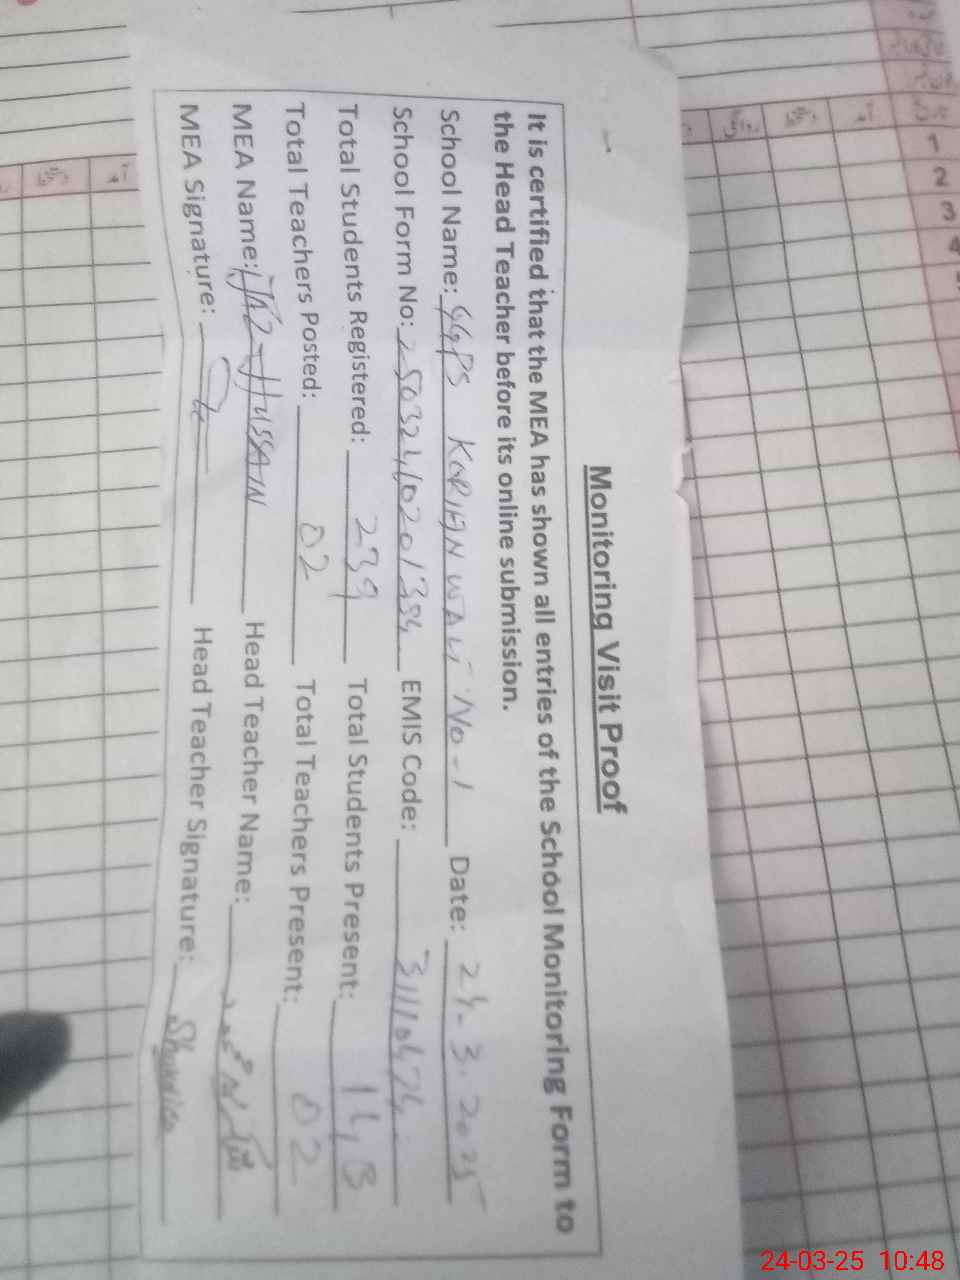 Monitoring Visit Proof
It is certified that the MEA has shown all entries of the School Monitoring Form to
the Head Teacher before its online submission.
School Name: GGPS KORIAN WALI No-1 Date: 24-3-2025
School Form No: 25032410201384 EMIS Code: 31110474
Total Students Registered: 239 Total Students Present: 143
Total Teachers Posted: 02 Total Teachers Present: 02
MEA Name: IJAZ HUSSAIN Head Teacher Name:
MEA Signature: Head Teacher Signature:
1
2
3
4
24-03-25 10:48